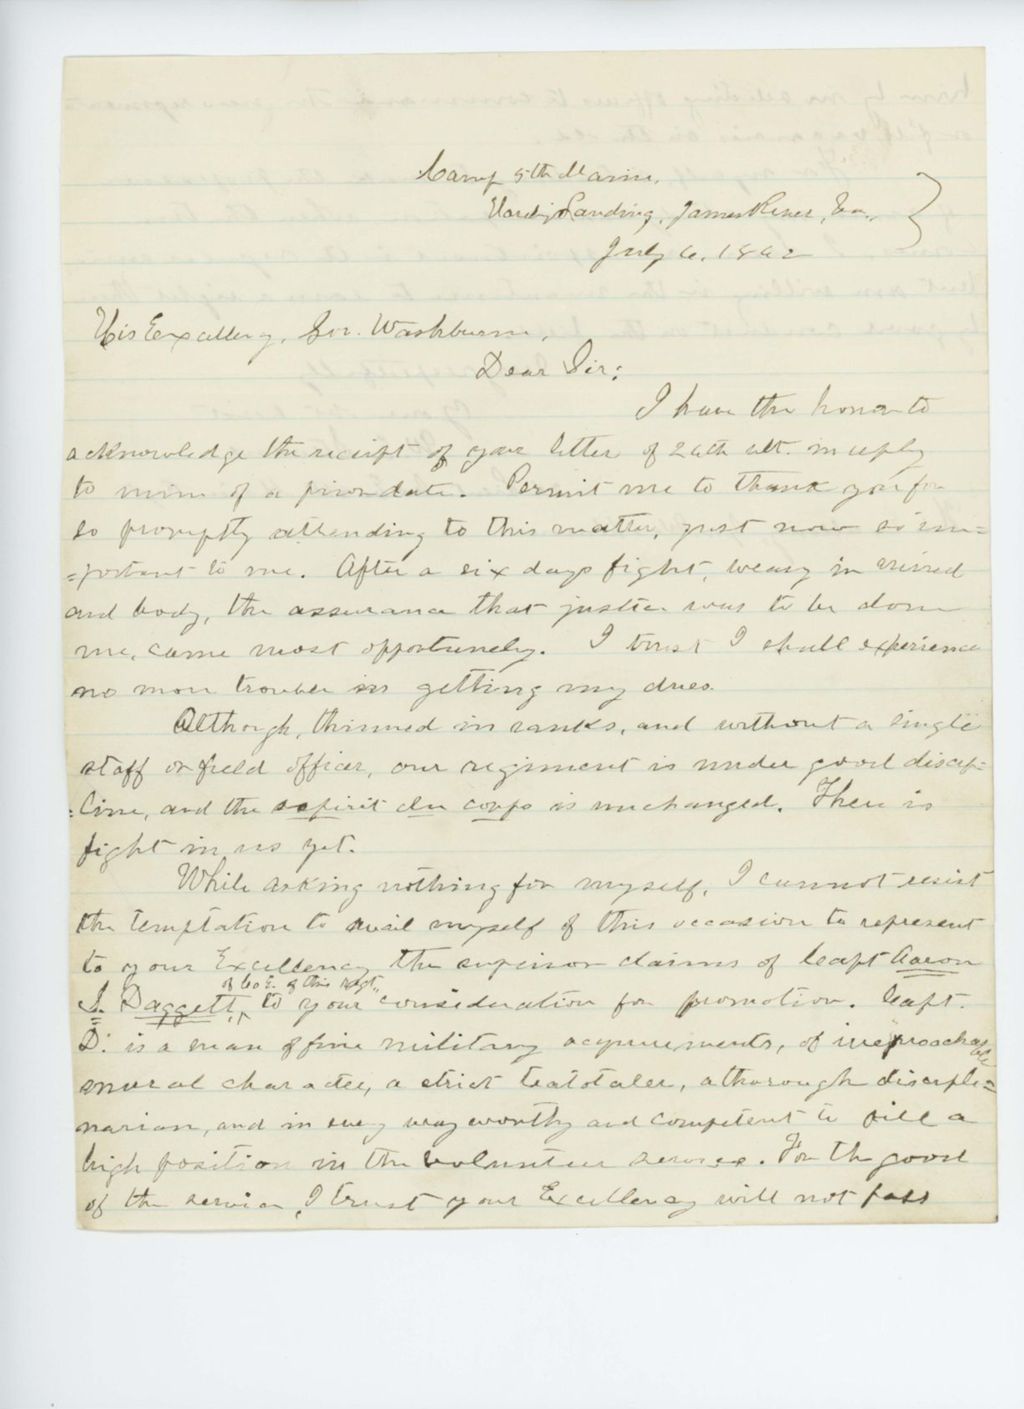 Camp 5th Maine,
Hardy's Landing, James River, Va.,
July 6, 1862
His Excellency, Gov. Washburn,
Dear Sir:
I have the honor to
acknowledge the receipt of your letter of 26th ult. in reply
to mine of a prior date. Permit me to thank you for
so promptly attending to this matter, just now so im=
=portant to me. After a six days fight, weary in mind
and body, the assurance that justice was to be done
me, came most opportunely. I trust I shall experience
no more trouble in getting my dues.
Although, thinned in ranks, and without a single
staff or field officer, our regiment is under good discip=
=line, and the esprit du corps is unchanged. There is
fight in us yet.
While asking nothing for myself, I cannot resist
the temptation to avail myself of this occasion to represent
to your Excellency the superior claims of Capt Aaron
of Co E. of this Regt
S. Daggett, to your consideration for promotion. Capt.
D. is a man of fine military acquirements, of irreproachable
moral character, a strict teatotaler, a thorough discipli=
narian, and in every way worthy and competent to fill a
high position in the volunteer service. For the good
of the service, I trust your Excellency will not pass